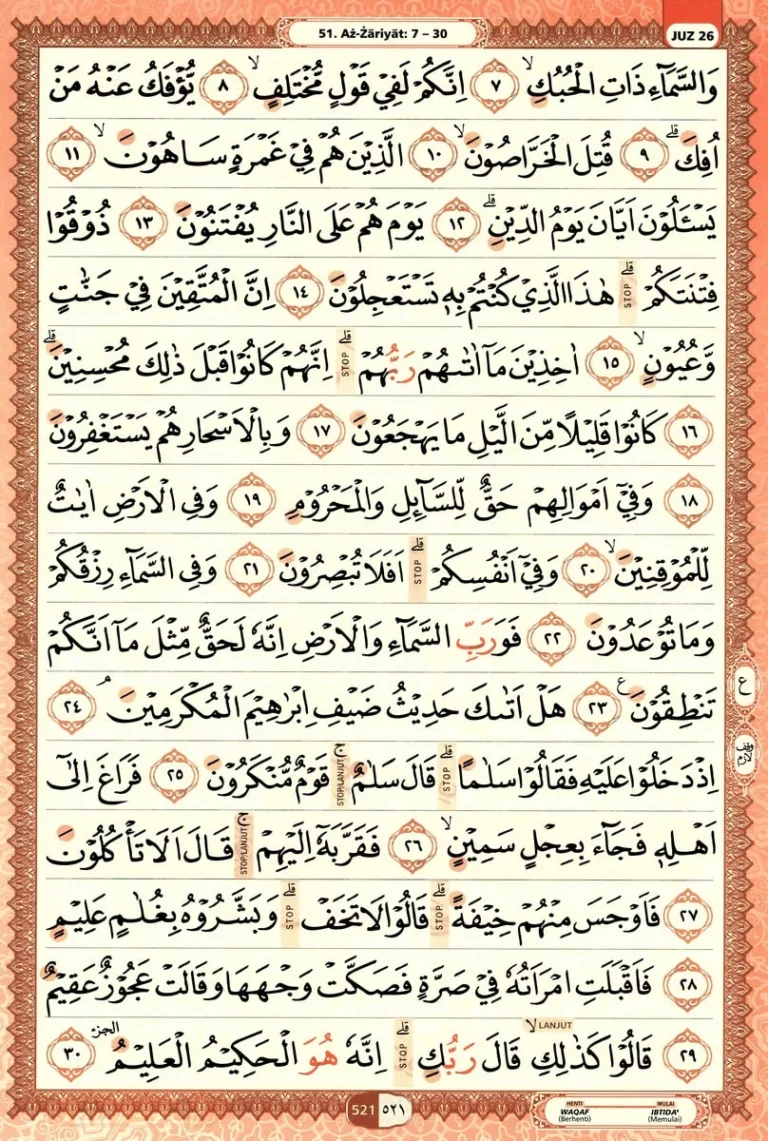 51. Aż-Żāriyāt: 7 – 30
JUZ 26
وَالسَّمَاۤءِ ذَاتِ الْحُبُكِۙ ٧ اِنَّكُمْ لَفِيْ قَوْلٍ مُّخْتَلِفٍۙ ٨ يُّؤْفَكُ عَنْهُ مَنْ
اُفِكَۗ ٩ قُتِلَ الْخَرَّاصُوْنَۙ ١٠ الَّذِيْنَ هُمْ فِيْ غَمْرَةٍ سَاهُوْنَۙ ١١
يَسْـَٔلُوْنَ اَيَّانَ يَوْمُ الدِّيْنِۗ ١٢ يَوْمَ هُمْ عَلَى النَّارِ يُفْتَنُوْنَ ١٣ ذُوْقُوْا
فِتْنَتَكُمْۗ STOP هٰذَا الَّذِيْ كُنْتُمْ بِهٖ تَسْتَعْجِلُوْنَ ١٤ اِنَّ الْمُتَّقِيْنَ فِيْ جَنّٰتٍ
وَّعُيُوْنٍۙ ١٥ اٰخِذِيْنَ مَآ اٰتٰىهُمْ رَبُّهُمْۗ STOP اِنَّهُمْ كَانُوْا قَبْلَ ذٰلِكَ مُحْسِنِيْنَۗ
١٦ كَانُوْا قَلِيْلًا مِّنَ الَّيْلِ مَا يَهْجَعُوْنَ ١٧ وَبِالْاَسْحَارِ هُمْ يَسْتَغْفِرُوْنَ
١٨ وَفِيْٓ اَمْوَالِهِمْ حَقٌّ لِّلسَّاۤىِٕلِ وَالْمَحْرُوْمِ ١٩ وَفِى الْاَرْضِ اٰيٰتٌ
لِّلْمُوْقِنِيْنَۙ ٢٠ وَفِيْٓ اَنْفُسِكُمْۗ STOP اَفَلَا تُبْصِرُوْنَ ٢١ وَفِى السَّمَاۤءِ رِزْقُكُمْ
وَمَا تُوْعَدُوْنَ ٢٢ فَوَرَبِّ السَّمَاۤءِ وَالْاَرْضِ اِنَّهٗ لَحَقٌّ مِّثْلَ مَآ اَنَّكُمْ
تَنْطِقُوْنَ ࣖ ٢٣ هَلْ اَتٰىكَ حَدِيْثُ ضَيْفِ اِبْرٰهِيْمَ الْمُكْرَمِيْنَۘ ٢٤
ع
وقف لازم
اِذْ دَخَلُوْا عَلَيْهِ فَقَالُوْا سَلٰمًاۗ STOP قَالَ سَلٰمٌۚ STOP/LANJUT قَوْمٌ مُّنْكَرُوْنَ ٢٥ فَرَاغَ اِلٰٓى
اَهْلِهٖ فَجَاۤءَ بِعِجْلٍ سَمِيْنٍۙ ٢٦ فَقَرَّبَهٗٓ اِلَيْهِمْۚ STOP/LANJUT قَالَ اَلَا تَأْكُلُوْنَ
٢٧ فَاَوْجَسَ مِنْهُمْ خِيْفَةًۗ STOP قَالُوْا لَا تَخَفْۗ STOP وَبَشَّرُوْهُ بِغُلٰمٍ عَلِيْمٍ
٢٨ فَاَقْبَلَتِ امْرَاَتُهٗ فِيْ صَرَّةٍ فَصَكَّتْ وَجْهَهَا وَقَالَتْ عَجُوْزٌ عَقِيْمٌ
٢٩ قَالُوْا كَذٰلِكِۙ LANJUT قَالَ رَبُّكِۗ STOP اِنَّهٗ هُوَ الْحَكِيْمُ الْعَلِيْمُ الجزء ٣٠
521 ٥٢١
HENTI WAQAF (Berhenti) MULAI IBTIDA' (Memulai)